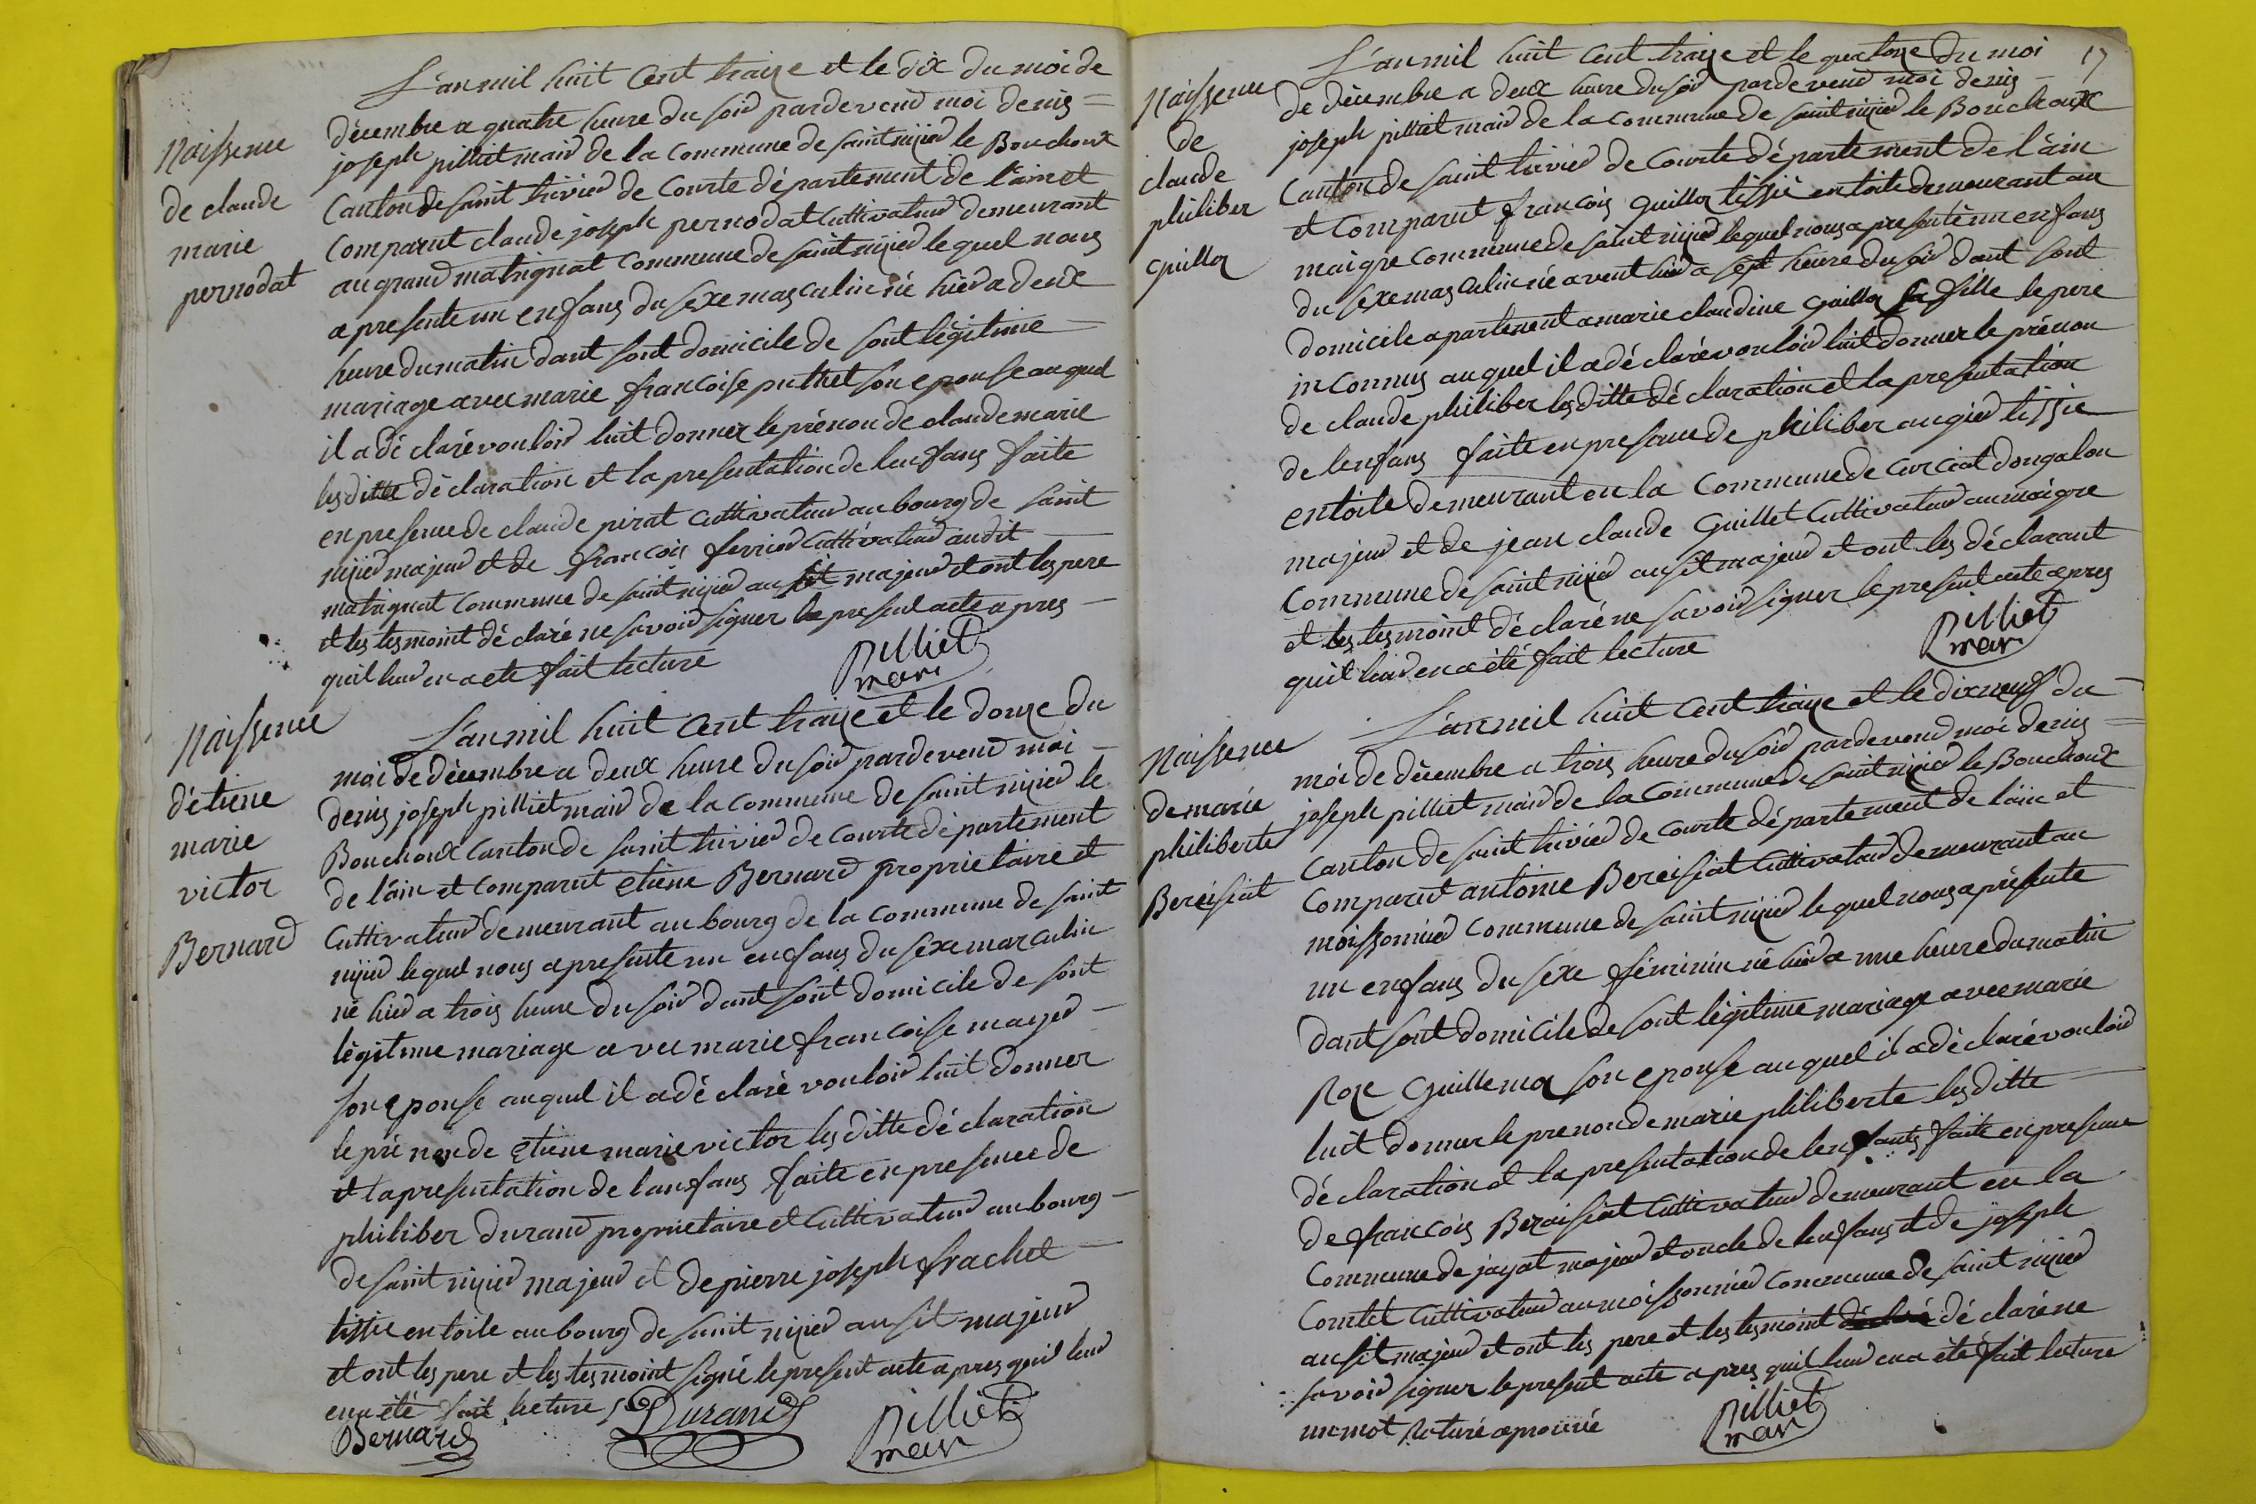 Naissence
de claude
marie
pernodat
L'an mil huit Cent traize et le dix du moi de
décembre a quatre heure du soir pardevend moi denis =
joseph pilliet maid de la commune de saint nizied le Bouchoux
Canton de saint trivied de Courte département de l'ain et
Comparut claude joseph pernodat Cuttivateud demeurant
au grand matrignat Commune de saint nizied lequel nous
a presenté un enfans du sexe masculin né hied a deux
heure du matin dant sont domicile de sont légitime —
mariage avec marie francoise puthet son epouse auquel
il a déclaré vouloid luit donner le prénon de claude marie
les ditte déclaration et la presentation de lenfans faite
en presence de claude pirat Cuttivateud au bourg de saint
nizied majeud et de francois fervied Cuttivateud audit —
matrignat Commune de saint nizied ausit majeud et ont les pere
et les tesmoint déclaré ne savoid signer le present acte apres —
quil leud en a ete fait lecture
Pilliet
mair
Naissence
d'étiene
marie
victor
Bernard
L'an mil huit Cent traize et le douze du
moi de décembre a deux heure du soid pardevend moi —
denis joseph pilliet maid de la commune de saint nizied le
Bouchoux Canton de saint trivied de Courte département
de l'ain et Comparut etiene Bernard proprietaire et
Cuttivateud demeurant au bourg de la commune de saint
nizied lequel nous a presenté un enfans du sexe masculin
né hied a trois heure du soid dant sont domicile de sont
légitime mariage avec marie francoise mayed —
son epouse auquel il a déclaré vouloid luit donner
le prénon de etiene marie victor les ditte déclaration
et la presentation de lanfans faite en presence de
philiber durand proprietaire et Cuttivateud au bourg —
de saint nizied majeud et de pierre joseph frachet —
tissié en toile au bourg de saint nizied ausit majeud
et ont les pere et les tesmoint signé le present acte apres quil leud
en a été fait lecture
Bernard
Durand
Pilliet
mair
17
Naissence
de
claude
philiber
guillon
L'an mil huit Cent traize et le quatorze du moi
de décembre a deux heure du soid pardevend moi denis —
joseph pilliet maid de la commune de saint nizied le Bouchoux
Canton de saint trivied de Courte département de l'ain
et Comparut francois guillon tissié en toile demeurant au
maigre commune de saint nizied lequel nous a presenté un enfans
du sexe masculin né avent hied a sept heure du soid dant sont
domicile apartenent a marie claudine guillon sa fille le pere
inconnus auquel il a déclaré vouloid luit donner le prénon
de claude philiber les ditte déclaration et la presentation
de lenfans faite en presance de philiber augied tissié
en toile demeurant en la Commune de Curciat dongalon
majeud et de jean claude guillet Cuttivateud au maigre
Commune de saint nizied ausit majeud et ont les déclarant
et les tesmoint déclaré ne savoid signer le present acte apres
quil leud en a été fait lecture
Pilliet
mair
Naissence
de marie
philiberte
Bereisiat
L'an mil huit Cent traize et le dix neuf du —
moi de décembre a trois heure du soid pardevend moi denis =
joseph pilliet maid de la commune de saint nizied le Bouchoux
Canton de saint trivied de courte département de l'ain et
Comparut antoine Bereisiat Cuttivateud demeurant au
moissonnied commune de saint nizied lequel nous a présente
un enfans du sexe féminin né hied a une heure du matin
dant sont domicile de sont légitime mariage avec marie
Roze Guillemon son epouse auquel il a déclaré vouloid
luit donner le prenon de marie philiberte les ditte —
déclaration et la presentation de lenfants faite en presence
de francois Beraisiat Cuttivateud demeurant en la
Commune de jayat majeud et oncle de lenfans et de joseph
Comtet Cuttivateud au moissonnied commune de saint nizied
ausit majeud et ont les pere et les tesmoint déclaré déclaré ne
savoid signer le present acte apres quil leud en a été fait lecture
un mot raturé aprouvé
Pilliet
mair